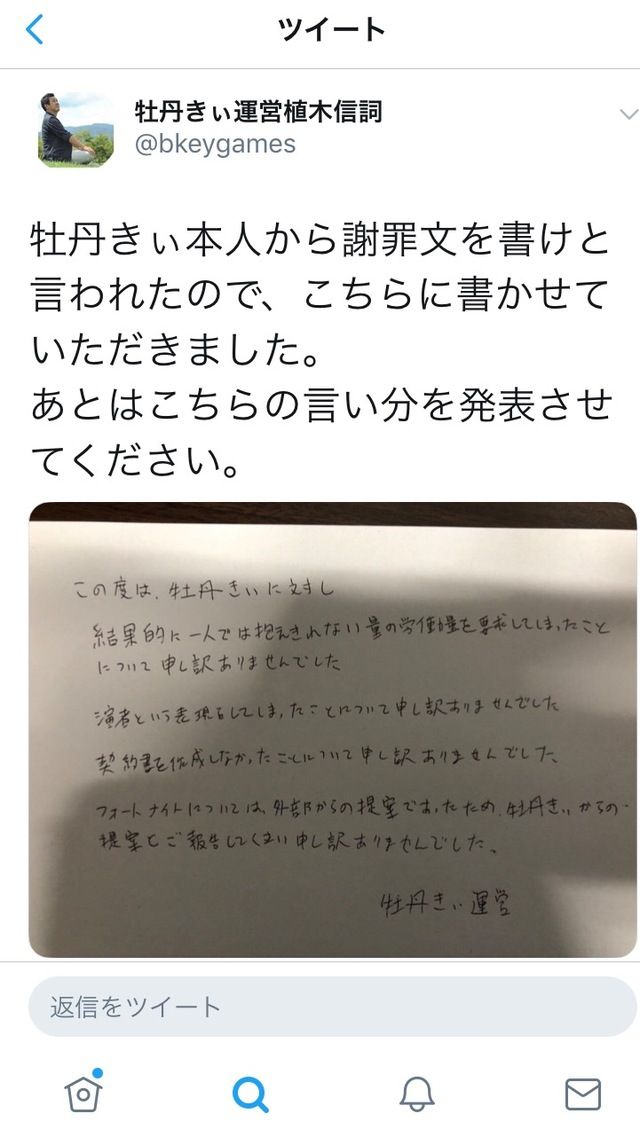 ツイート
牡丹きぃ運営植木信詞
@bkeygames
牡丹きぃ本人から謝罪文を書けと
言われたので、こちらに書かせて
いただきました。
あとはこちらの言い分を発表させ
てください。
この度は、牡丹きぃに対し
結果的に一人では抱えきれない量の労働量を要求してしまったこと
について申し訳ありませんでした
演者という表現をしてしまったことについて申し訳ありませんでした
契約書を作成しなかったことについて申し訳ありませんでした、
フォートナイトについては、外部からの提案であったため、牡丹きぃからの
提案とご報告してしまい申し訳ありませんでした、
牡丹きぃ運営
返信をツイート